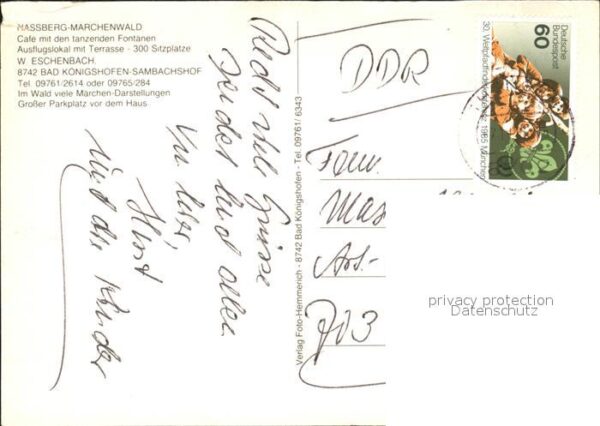 HASSBERG-MÄRCHENWALD
Café mit den tanzenden Fontänen
Ausflugslokal mit Terrasse - 300 Sitzplätze
W. ESCHENBACH,
8742 BAD KÖNIGSHOFEN-SAMBACHSHOF
Tel. 09761/2614 oder 09765/284
Im Wald viele Märchen-Darstellungen
Großer Parkplatz vor dem Haus
Recht viele Grüsse
sendet Euch allen
und die Kinder
Verlag Foto-Hemmerich - 8742 Bad Königshofen - Tel. 09761/6343
DDR
Fam.
703
Deutsche
Bundespost
60
30. Weltpfadfinderkonferenz 1985 München
privacy protection
Datenschutz